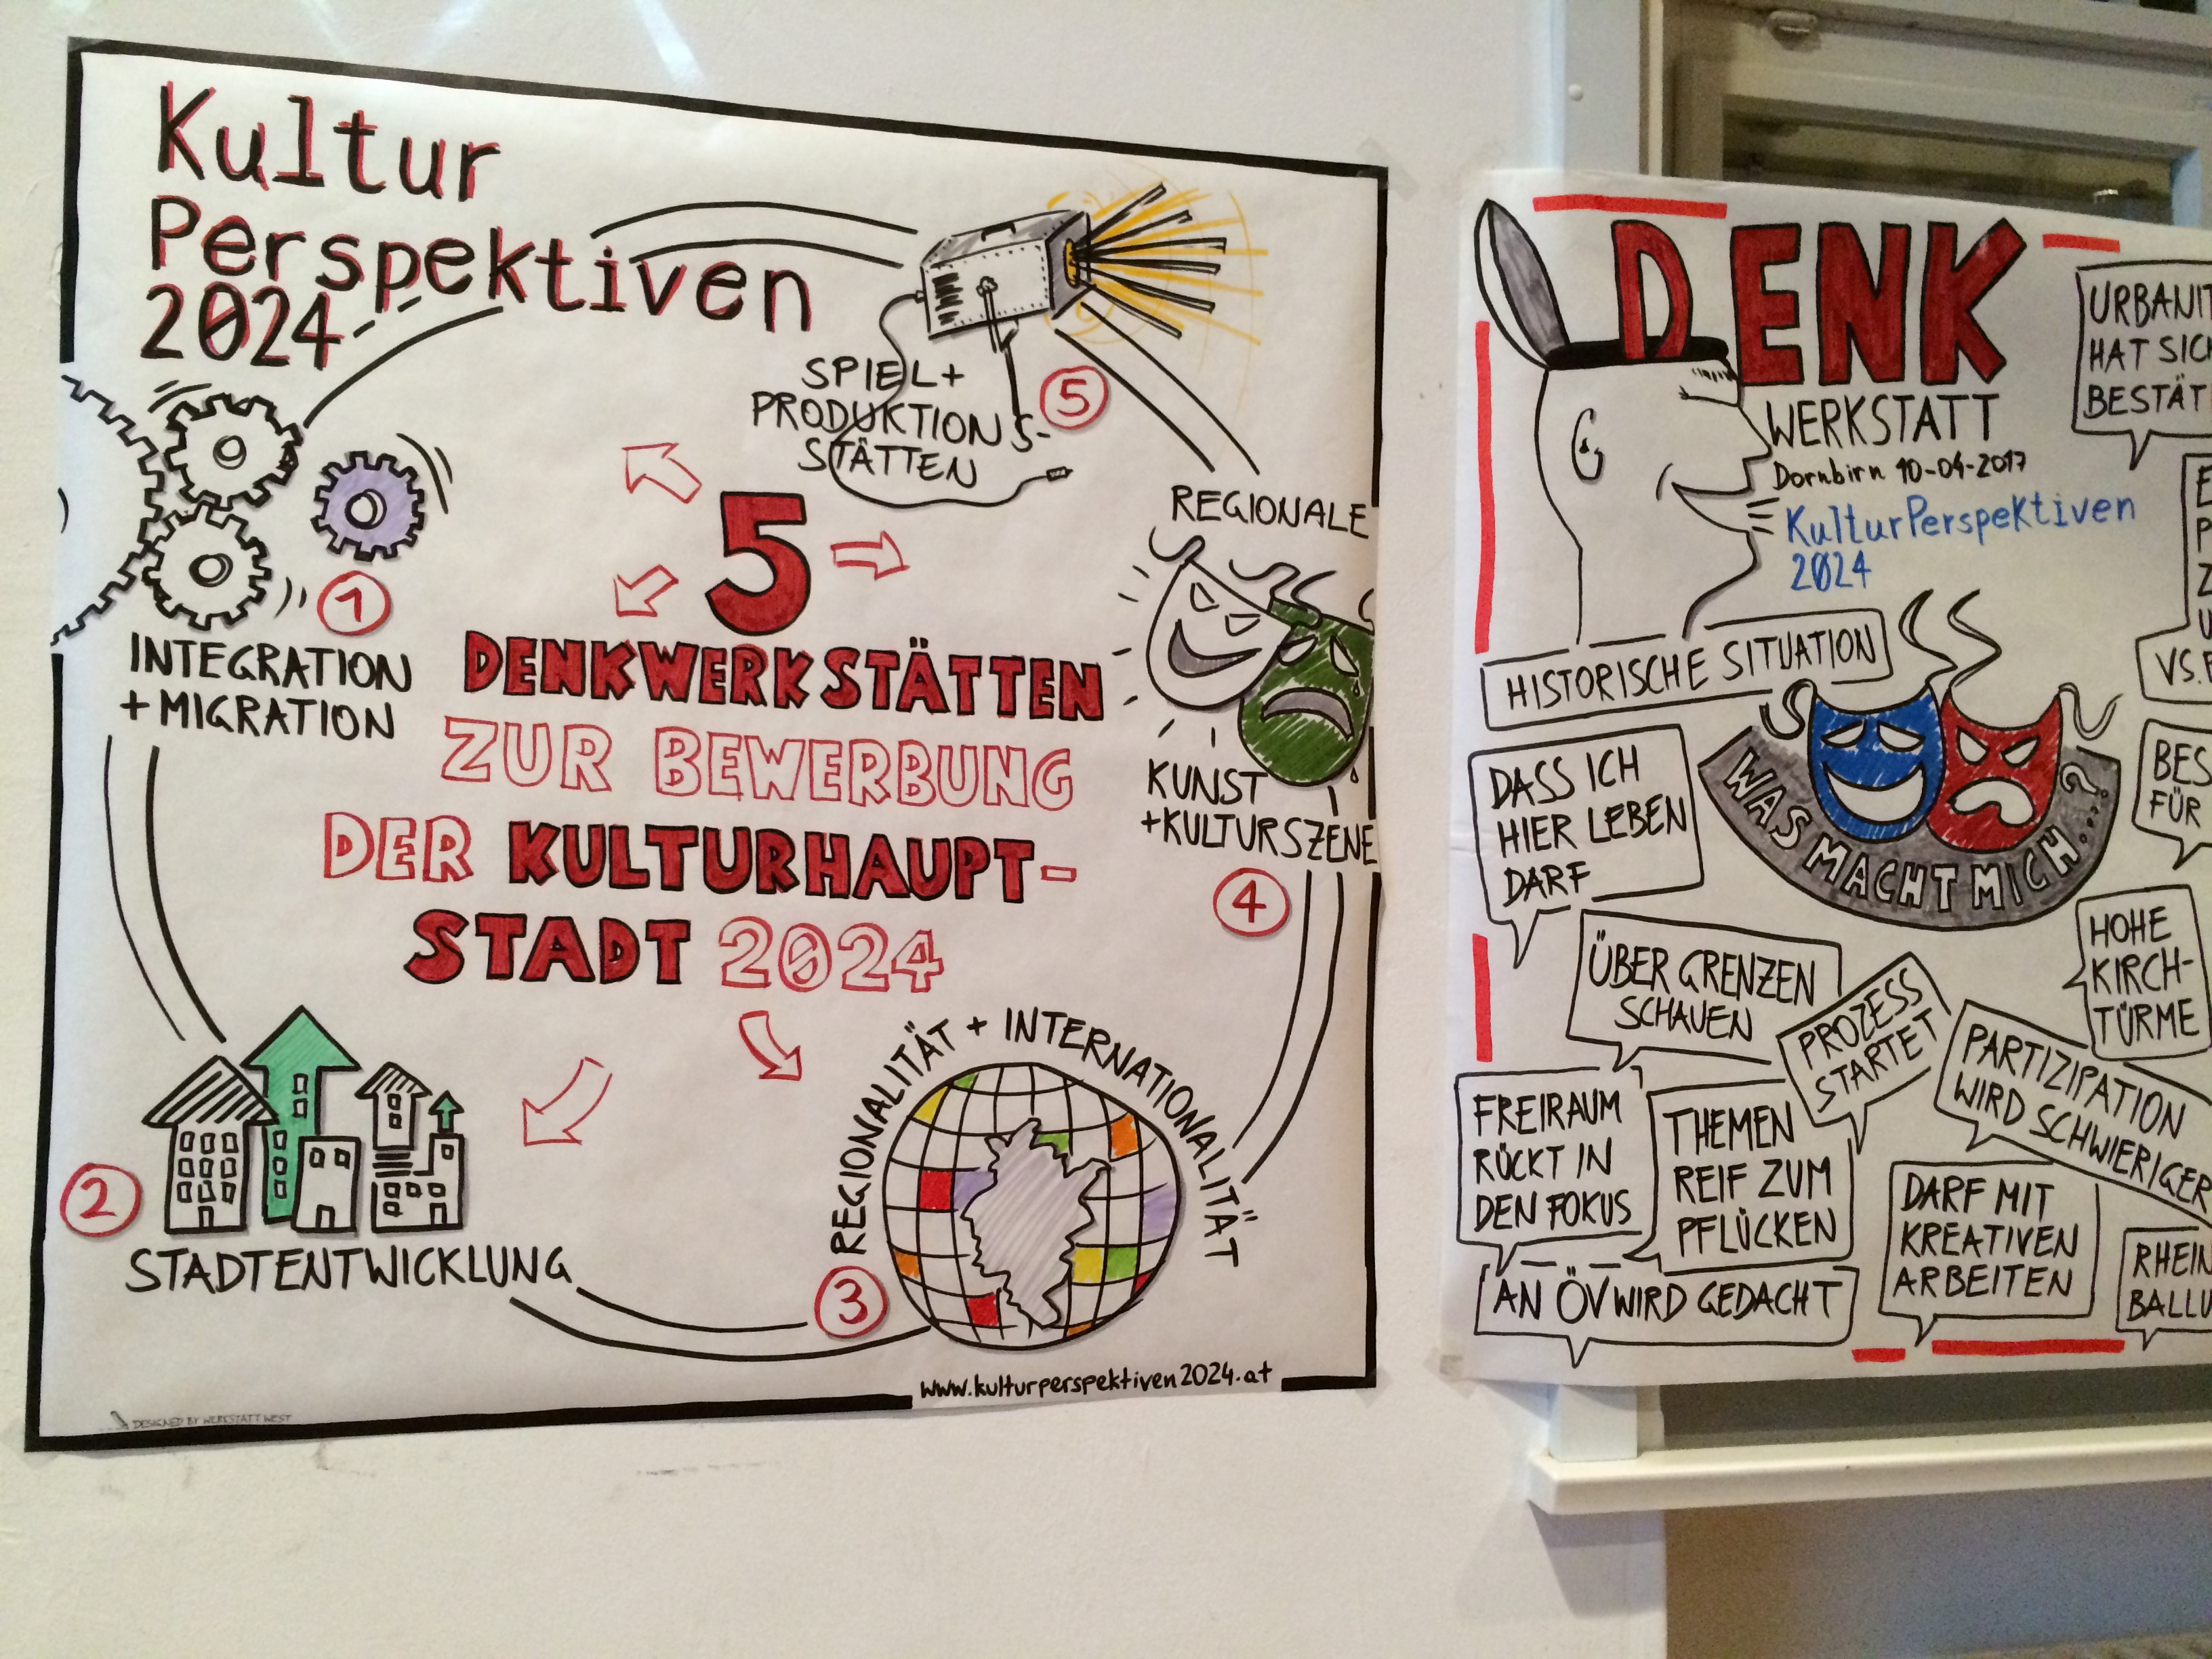 Kultur
Perspektiven
2024
SPIEL+
PRODUKTIONS-
STÄTTEN
5
REGIONALE
KUNST
+KULTURSZENE
4
1
INTEGRATION
+MIGRATION
5
DENKWERKSTÄTTEN
ZUR BEWERBUNG
DER KULTURHAUPT-
STADT 2024
2
STADTENTWICKLUNG
REGIONALITÄT + INTERNATIONALITÄT
3
www.kulturperspektiven2024.at
DESIGNED BY WERKSTATT WEST
DENK
WERKSTATT
Dornbirn 10-04-2017
KulturPerspektiven
2024
HISTORISCHE SITUATION
WAS MACHT MICH...?
DASS ICH
HIER LEBEN
DARF
ÜBER GRENZEN
SCHAUEN
PROZESS
STARTET
FREIRAUM
RÜCKT IN
DEN FOKUS
THEMEN
REIF ZUM
PFLÜCKEN
AN ÖV WIRD GEDACHT
PARTIZIPATION
WIRD SCHWIERIGER
DARF MIT
KREATIVEN
ARBEITEN
HOHE
KIRCH-
TÜRME
URBANIT
HAT SICH
BESTÄT
VS.
BES
FÜR
RHEIN
BALLU